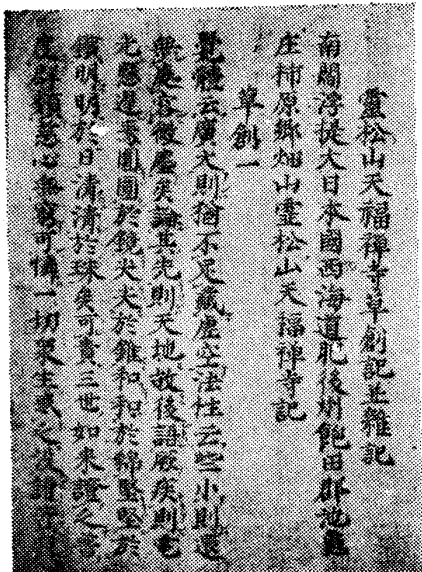 靈松山天福禪寺草創記並雜記
南閻浮提大日本國西海道肥後州飽田郡池龜
庄柿原鄉畑山靈松山天福禪寺記
草創一
覺體云廣大則猶不足藏虛空法性云些小則還
無處容微塵矣論其先則天地故後語厥疾則電
光懸遲焉圓圓於鏡尖尖於錐和和於綿堅堅於
鐵明明於日清清於珠矣可貴三世如來證之
度群類慈心無窮可憐一切衆生惑之